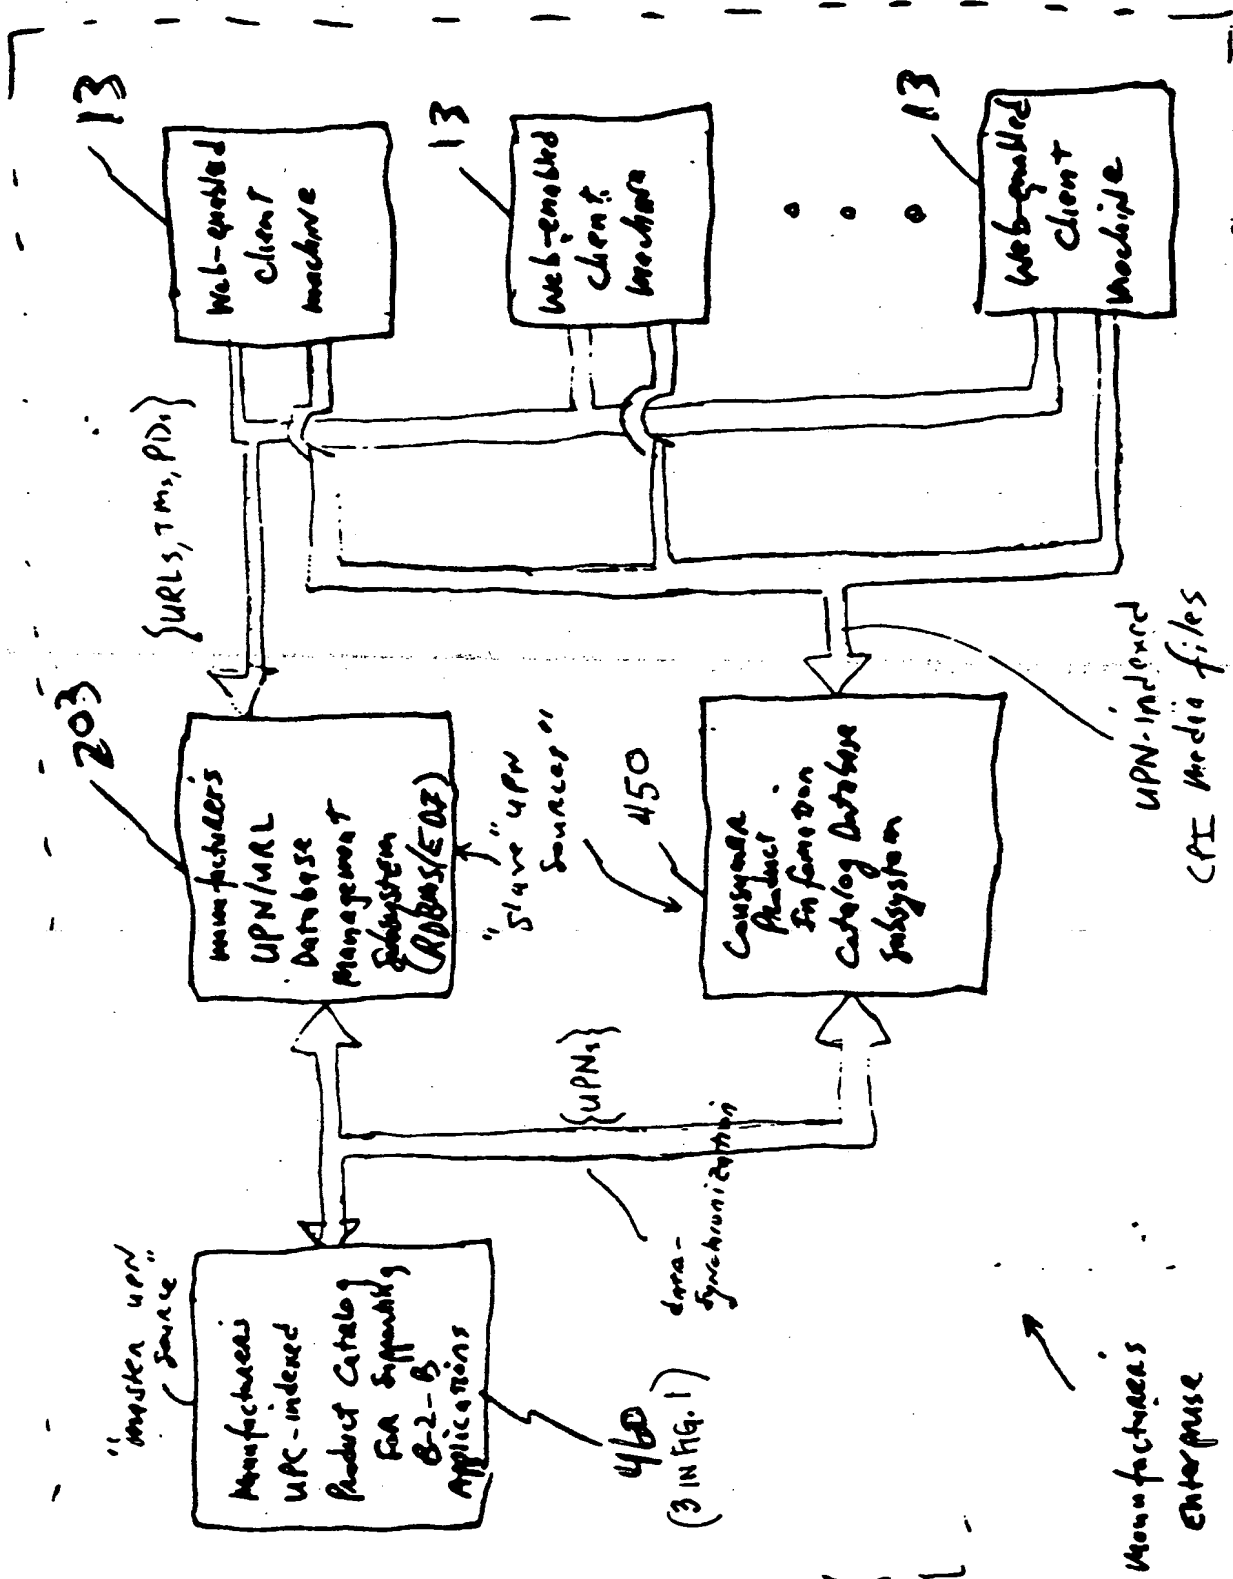 "master UPN"
source
Manufacturers
UPC-indexed
Product Catalog
For Supporting
B-2-B
Applications
460
(3 IN FIG. 1)
data-
synchronization
{UPNs}
203
manufacturer's
UPN/URL
Database
Management
Subsystem
(RDBMS/EDI)
"slave" UPN
sources"
450
Consumer
Product
Information
Catalog Database
Subsystem
{URLs, TMs, PDs}
UPN-indexed
CPI media files
13
Web-enabled
client
machine
13
Web-enabled
client
machine
13
Web-enabled
client
machine
Manufacturers
Enterprise